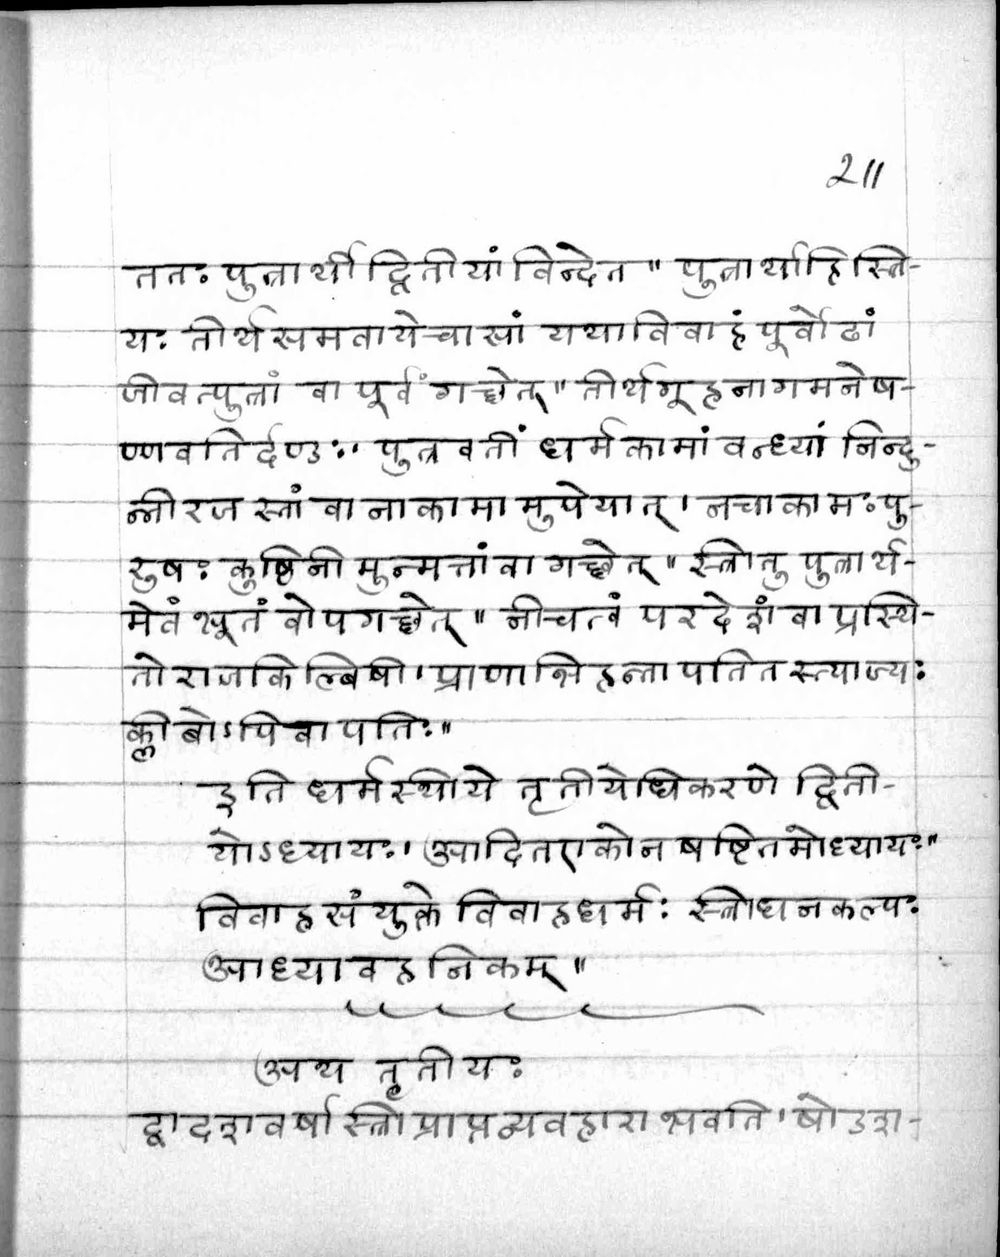 211
ततः पुत्रार्थी द्वितीयां विन्देत॥ पुत्रार्था हि स्त्रि-
यः तीर्थसमवाये चासां यथाविवाहं पूर्वोढां
जीवत्पुत्रां वा पूर्वं गच्छेत्॥ तीर्थगूहनागमने ष-
ण्णवतिर्दण्डः। पुत्रवतीं धर्मकामां वन्ध्यां निन्दु-
न्नीरजस्कां वा नाकामामुपेयात्। नचाकामः पु-
रुषः कुष्ठिनीमुन्मत्तां वा गच्छेत्॥ स्त्री तु पुत्रार्थ-
मेवं भूतं वोपगच्छेत्॥ नीचत्वं परदेशं वा प्रस्थि-
तो राजकिल्बिषी। प्राणाभिहन्ता पतितस्त्याज्यः
क्लीबोऽपि वा पतिः॥
इति धर्मस्थीये तृतीयेधिकरणे द्विती-
योऽध्यायः। आदित एकोनषष्टितमोध्यायः॥
विवाहसंयुक्ते विवाहधर्मः स्त्रीधनकल्पः
आध्यावहनिकम्॥
अथ तृतीयः
द्वादशवर्षा स्त्री प्राप्तव्यवहारा भवति। षोडश-